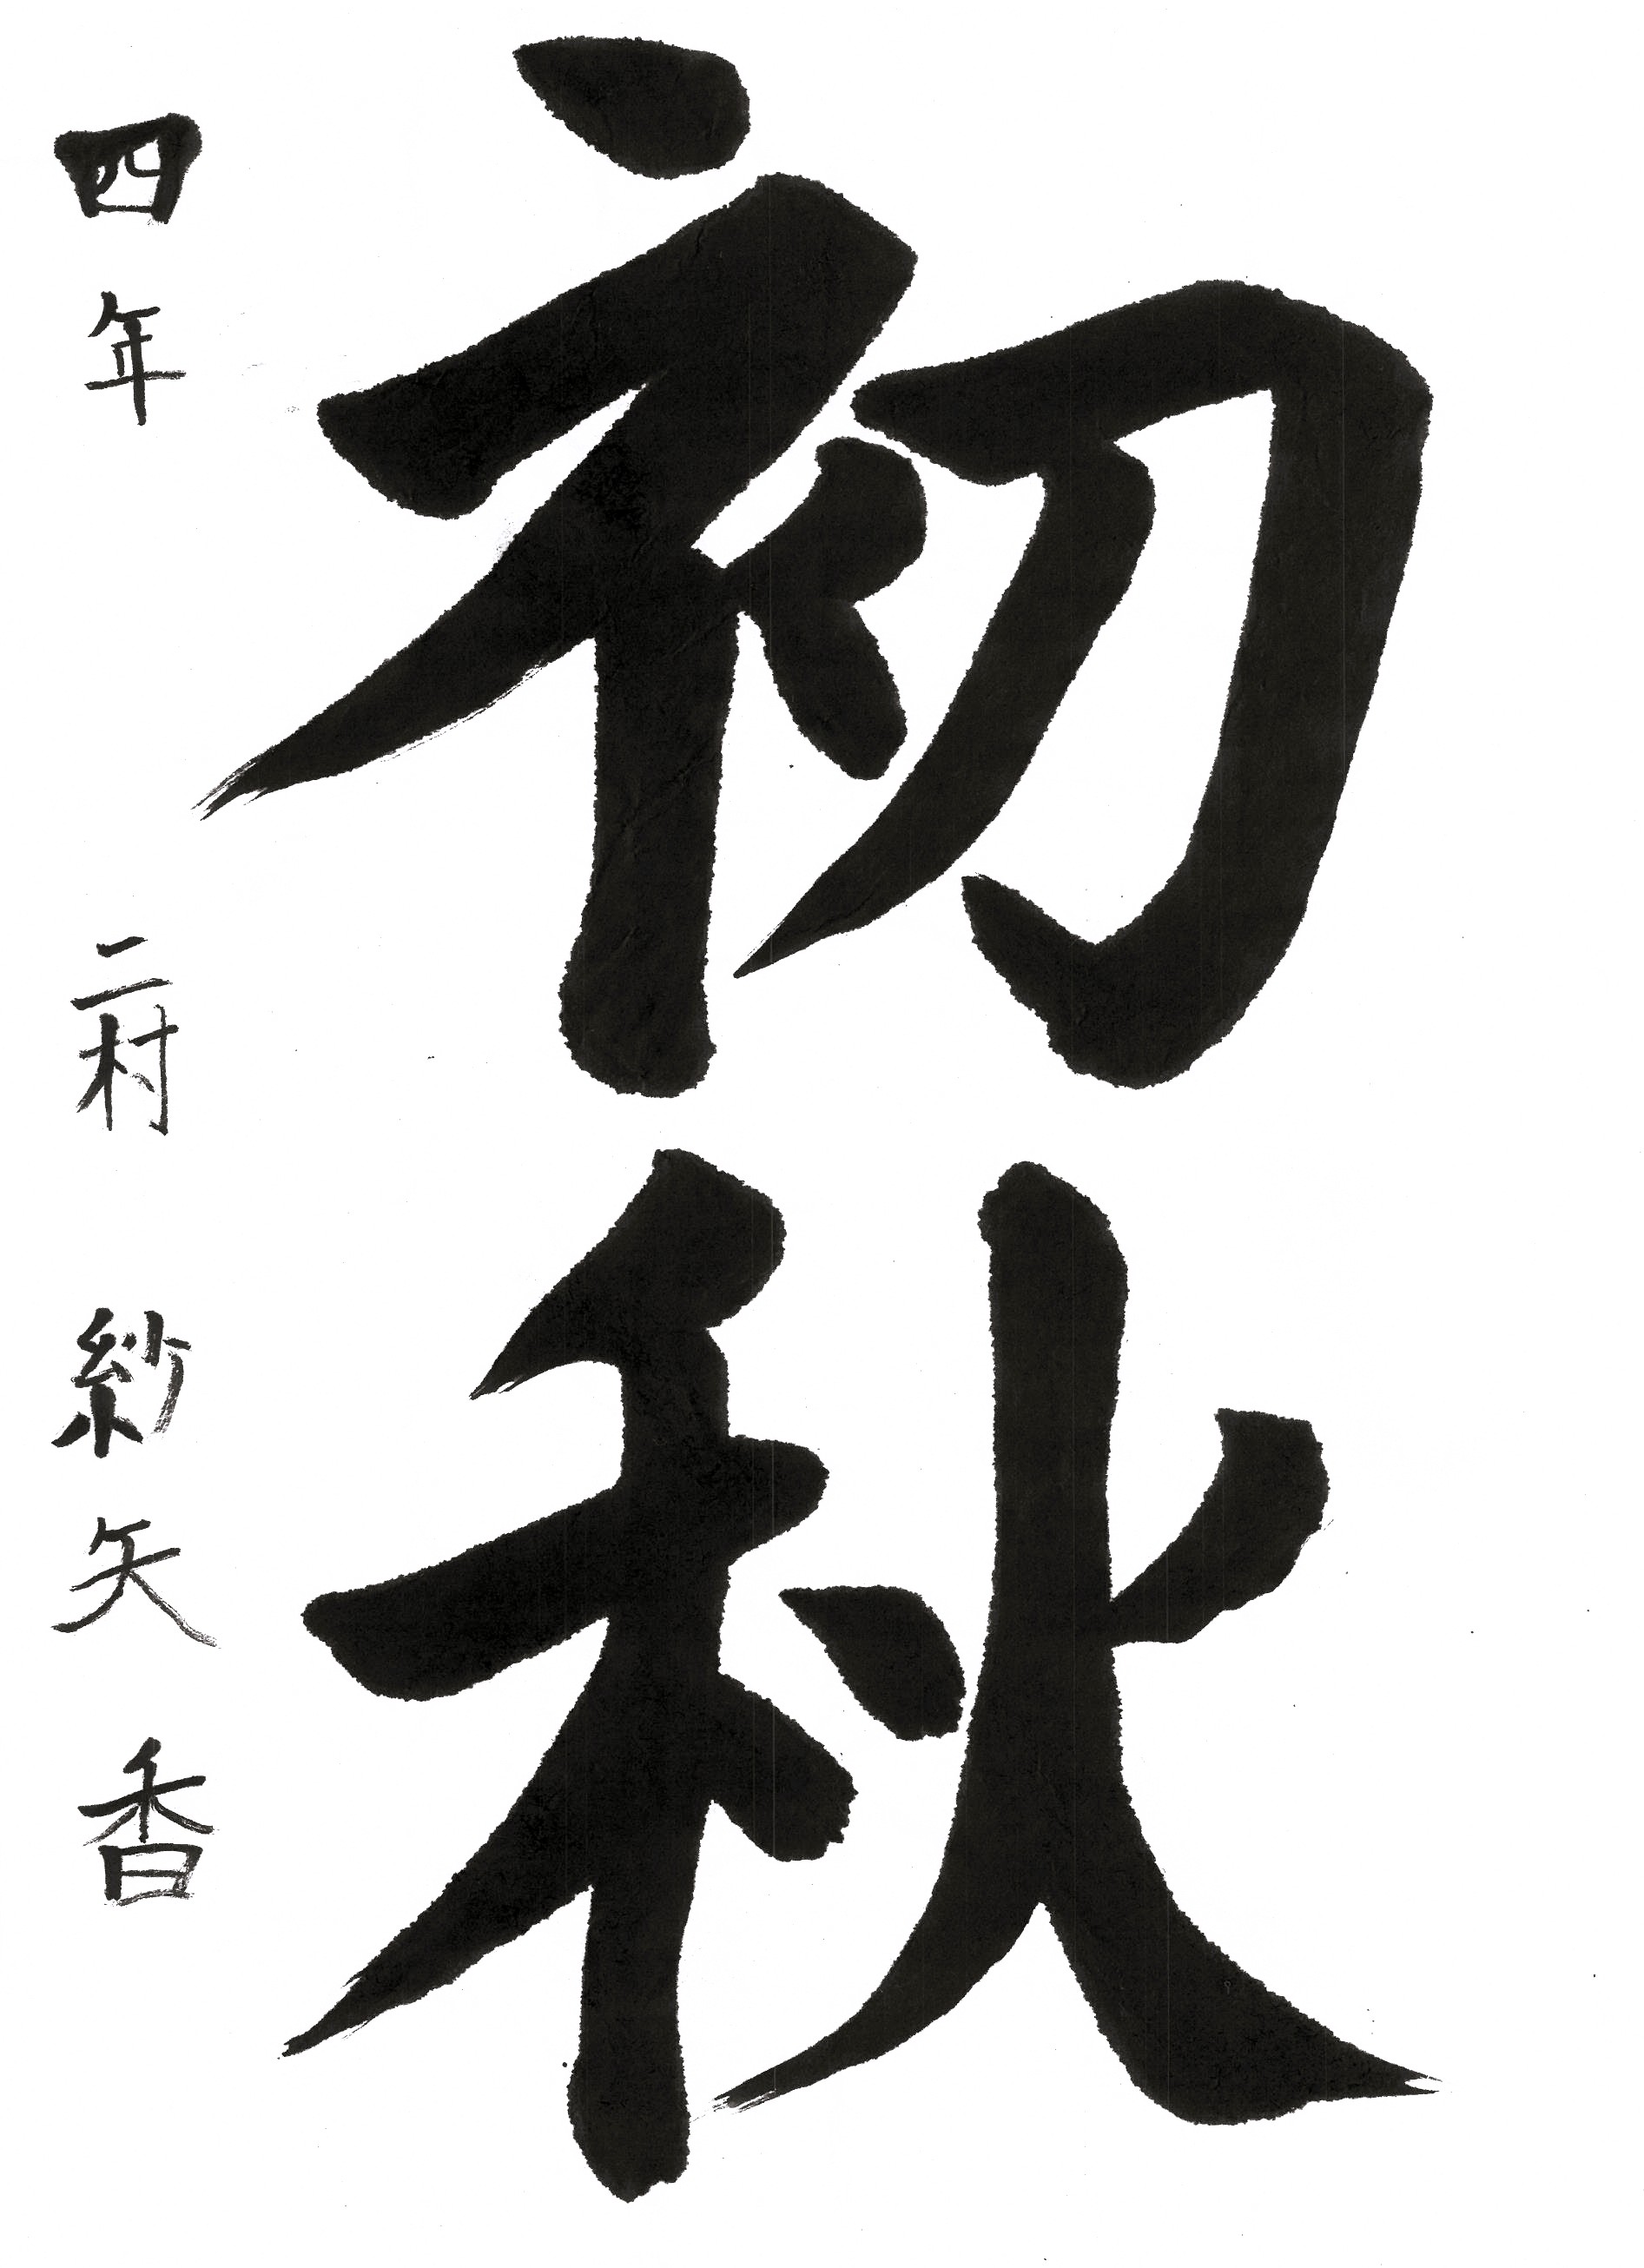 初秋
四年 二村 紗矢香